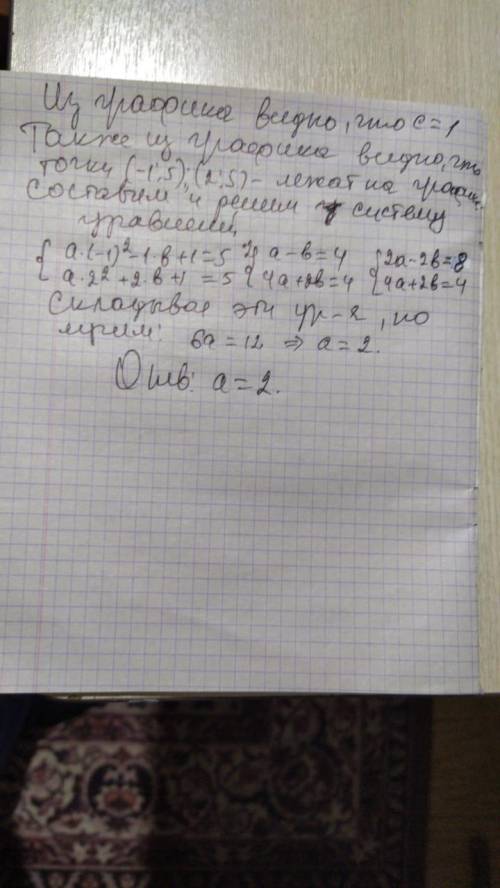 Из графика видно, что c = 1
Также из графика видно, что
точки (-1; 5); (2; 5) - лежат на
составим и решим систему
уравнений
{ a·(-1)² - 1·b + 1 = 5 { a - b = 4 { 2a - 2b = 8
{ a·2² + 2·b + 1 = 5 { 4a + 2b = 4 { 4a + 2b = 4
Складывая эти ур-я, по
лучим: 6a = 12 ⇒ a = 2.
Отв: a = 2.